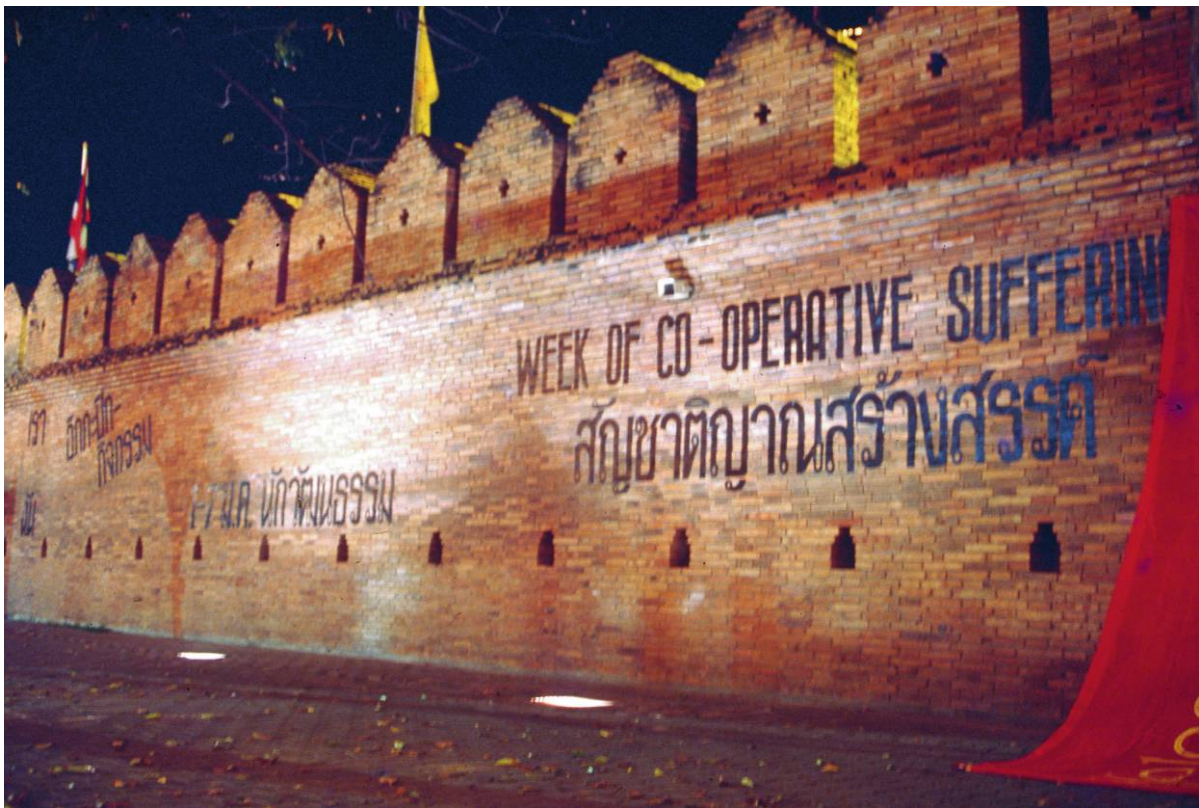 WEEK OF CO-OPERATIVE SUFFERIN
สัญชาติญาณสร้างสรรค์
เรา
กิจกรรม
1-7 ม.ค. นักวัฒนธรรม